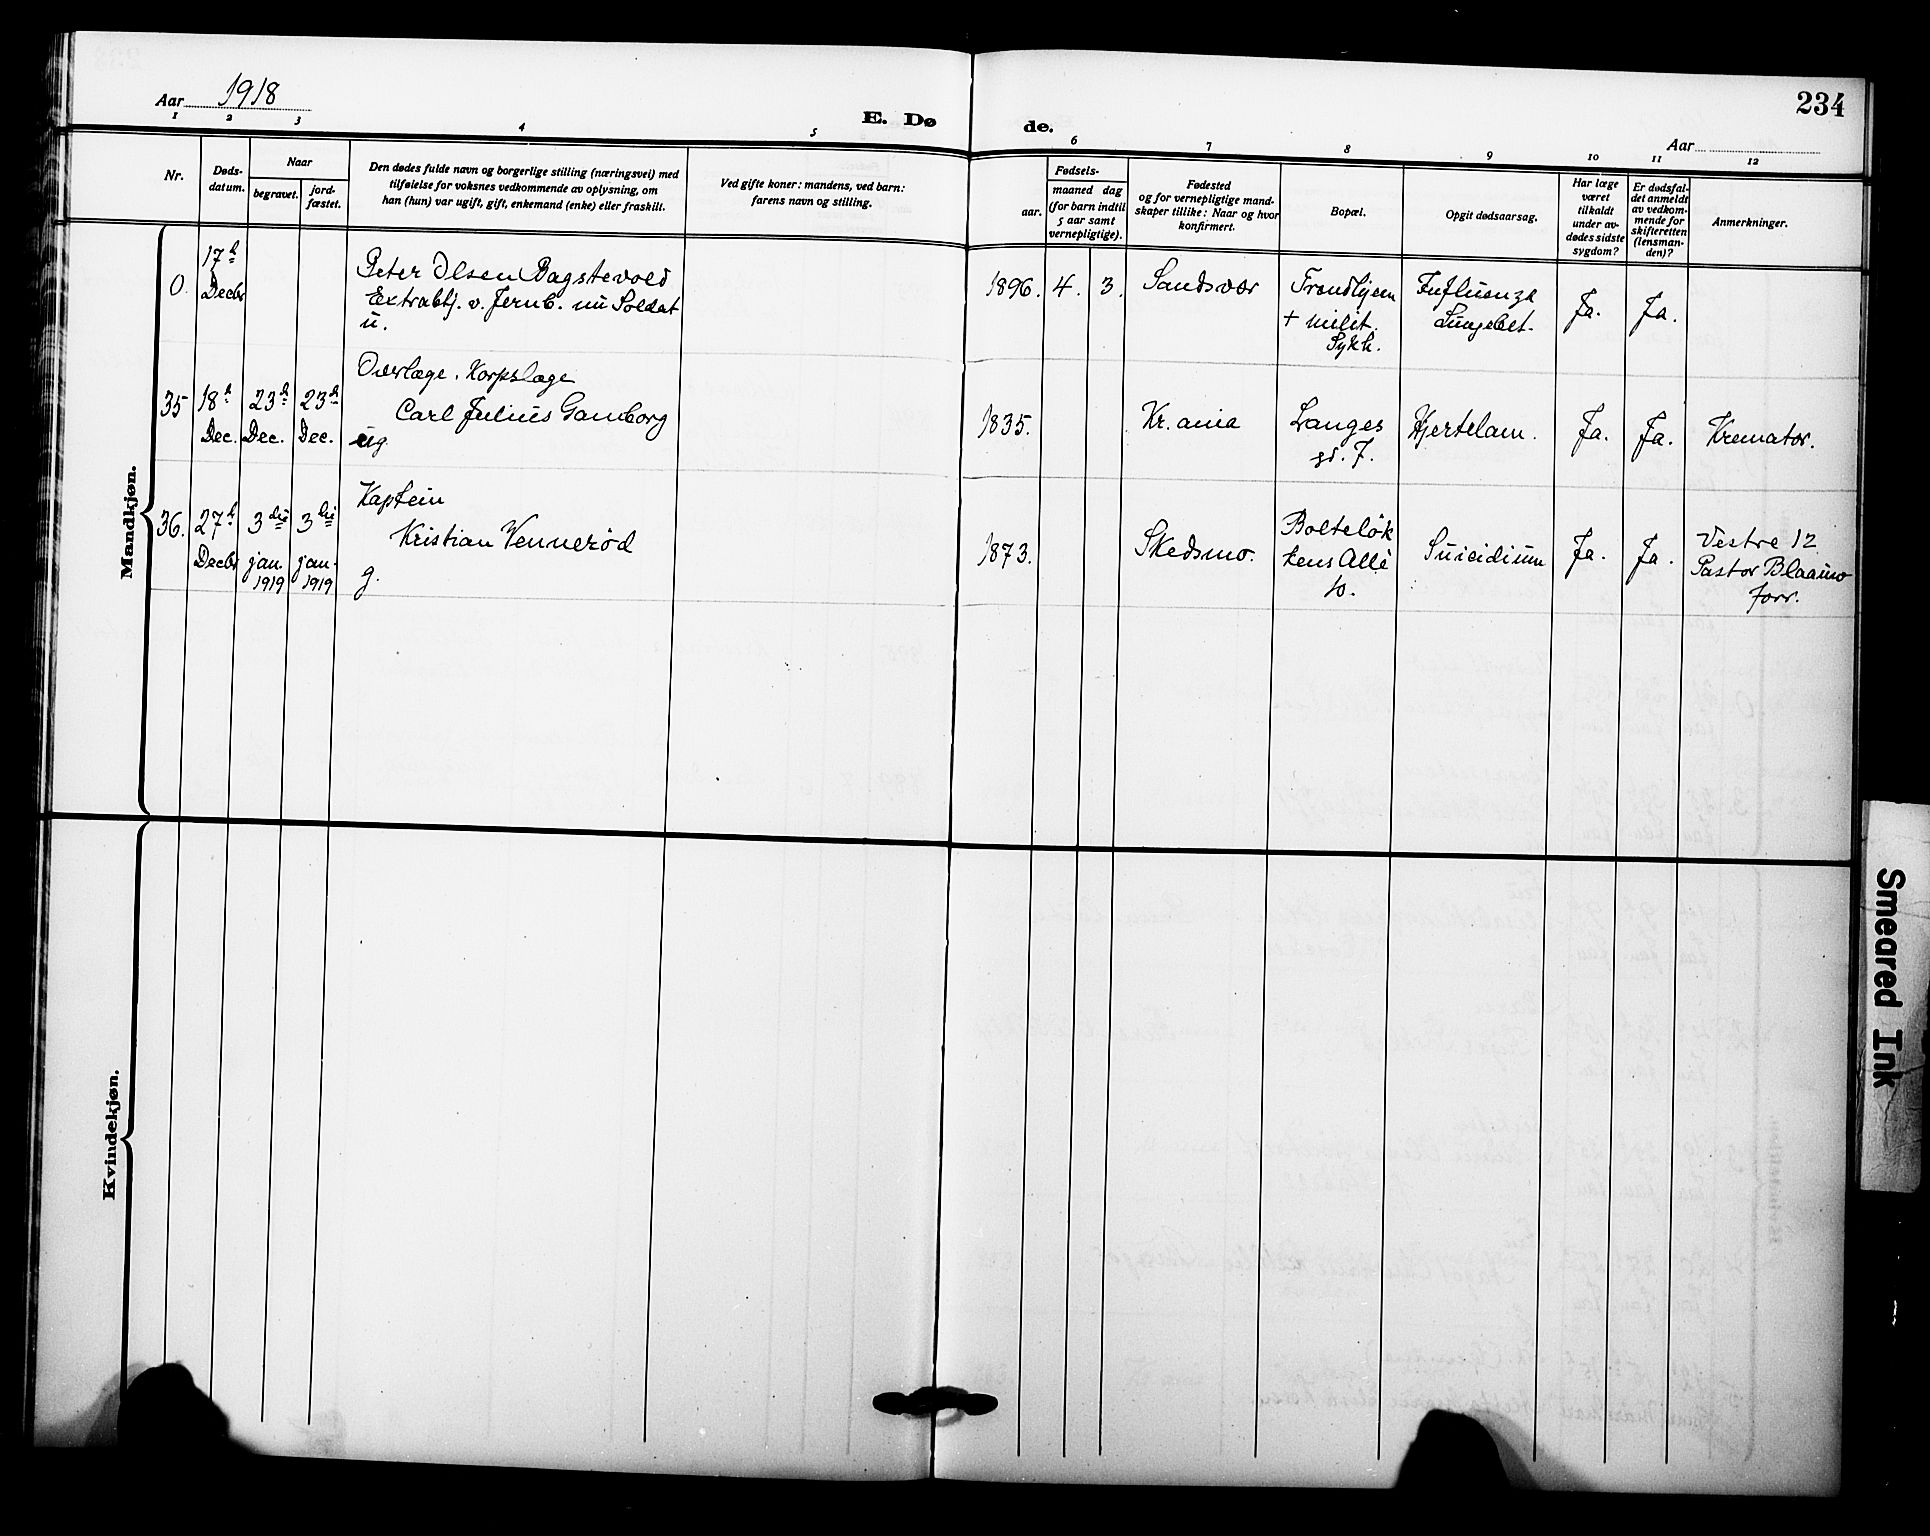 Aar 1918
E. Døde.
234
Aar
1 2 3 4 5 6 7 8 9 10 11 12
Nr.
Døds-
datum.
Naar
begravet.
jord-
fæstet.
Den dødes fulde navn og borgerlige stilling (næringsvei) med
tilføielse for voksnes vedkommende av oplysning, om
han (hun) var ugift, gift, enkemand (enke) eller fraskilt.
Ved gifte koner: mandens, ved barn:
farens navn og stilling.
Fødsels-
aar.
maaned dag
(for barn indtil
5 aar samt
vernepligtige).
Fødested
og for vernepligtige mand-
skaper tillike: Naar og hvor
konfirmert.
Bopæl.
Opgit dødsaarsag.
Har læge
været
tilkaldt
under av-
dødes sidste
sygdom?
Er dødsfal-
det anmeldt
av vedkom-
mende for
skifteretten
(lensman-
den)?
Anmerkninger.
Mandkjøn.
0.
17de
Decbr
Peter Olsen Bagstevold
Extrabtj. v. Jernb. nu Soldat
u.
1896. 4. 3.
Sandsvær
Trondhjem
+ milit.
Sykh.
Influenza
Lungebet.
Ja.
Ja.
35
18de
Dec.
23de
Dec.
23de
Dec.
Overlæge. Korpslæge
Carl Julius Gamborg
ug.
1835.
Kr.ania
Langes
gd. 7.
Hjertelam.
Ja.
Ja.
Kremator.
36.
27de
Decbr
3die
jan.
1919
3die
jan.
1919
Kaptein
Kristian Vennerød
g.
1873.
Skedsmo.
Bolteløk
kens Allé
10.
Suicidium
Ja.
Ja.
Vestre 12
Pastor Blaauw
forr.
Kvindekjøn.
Smeared Ink